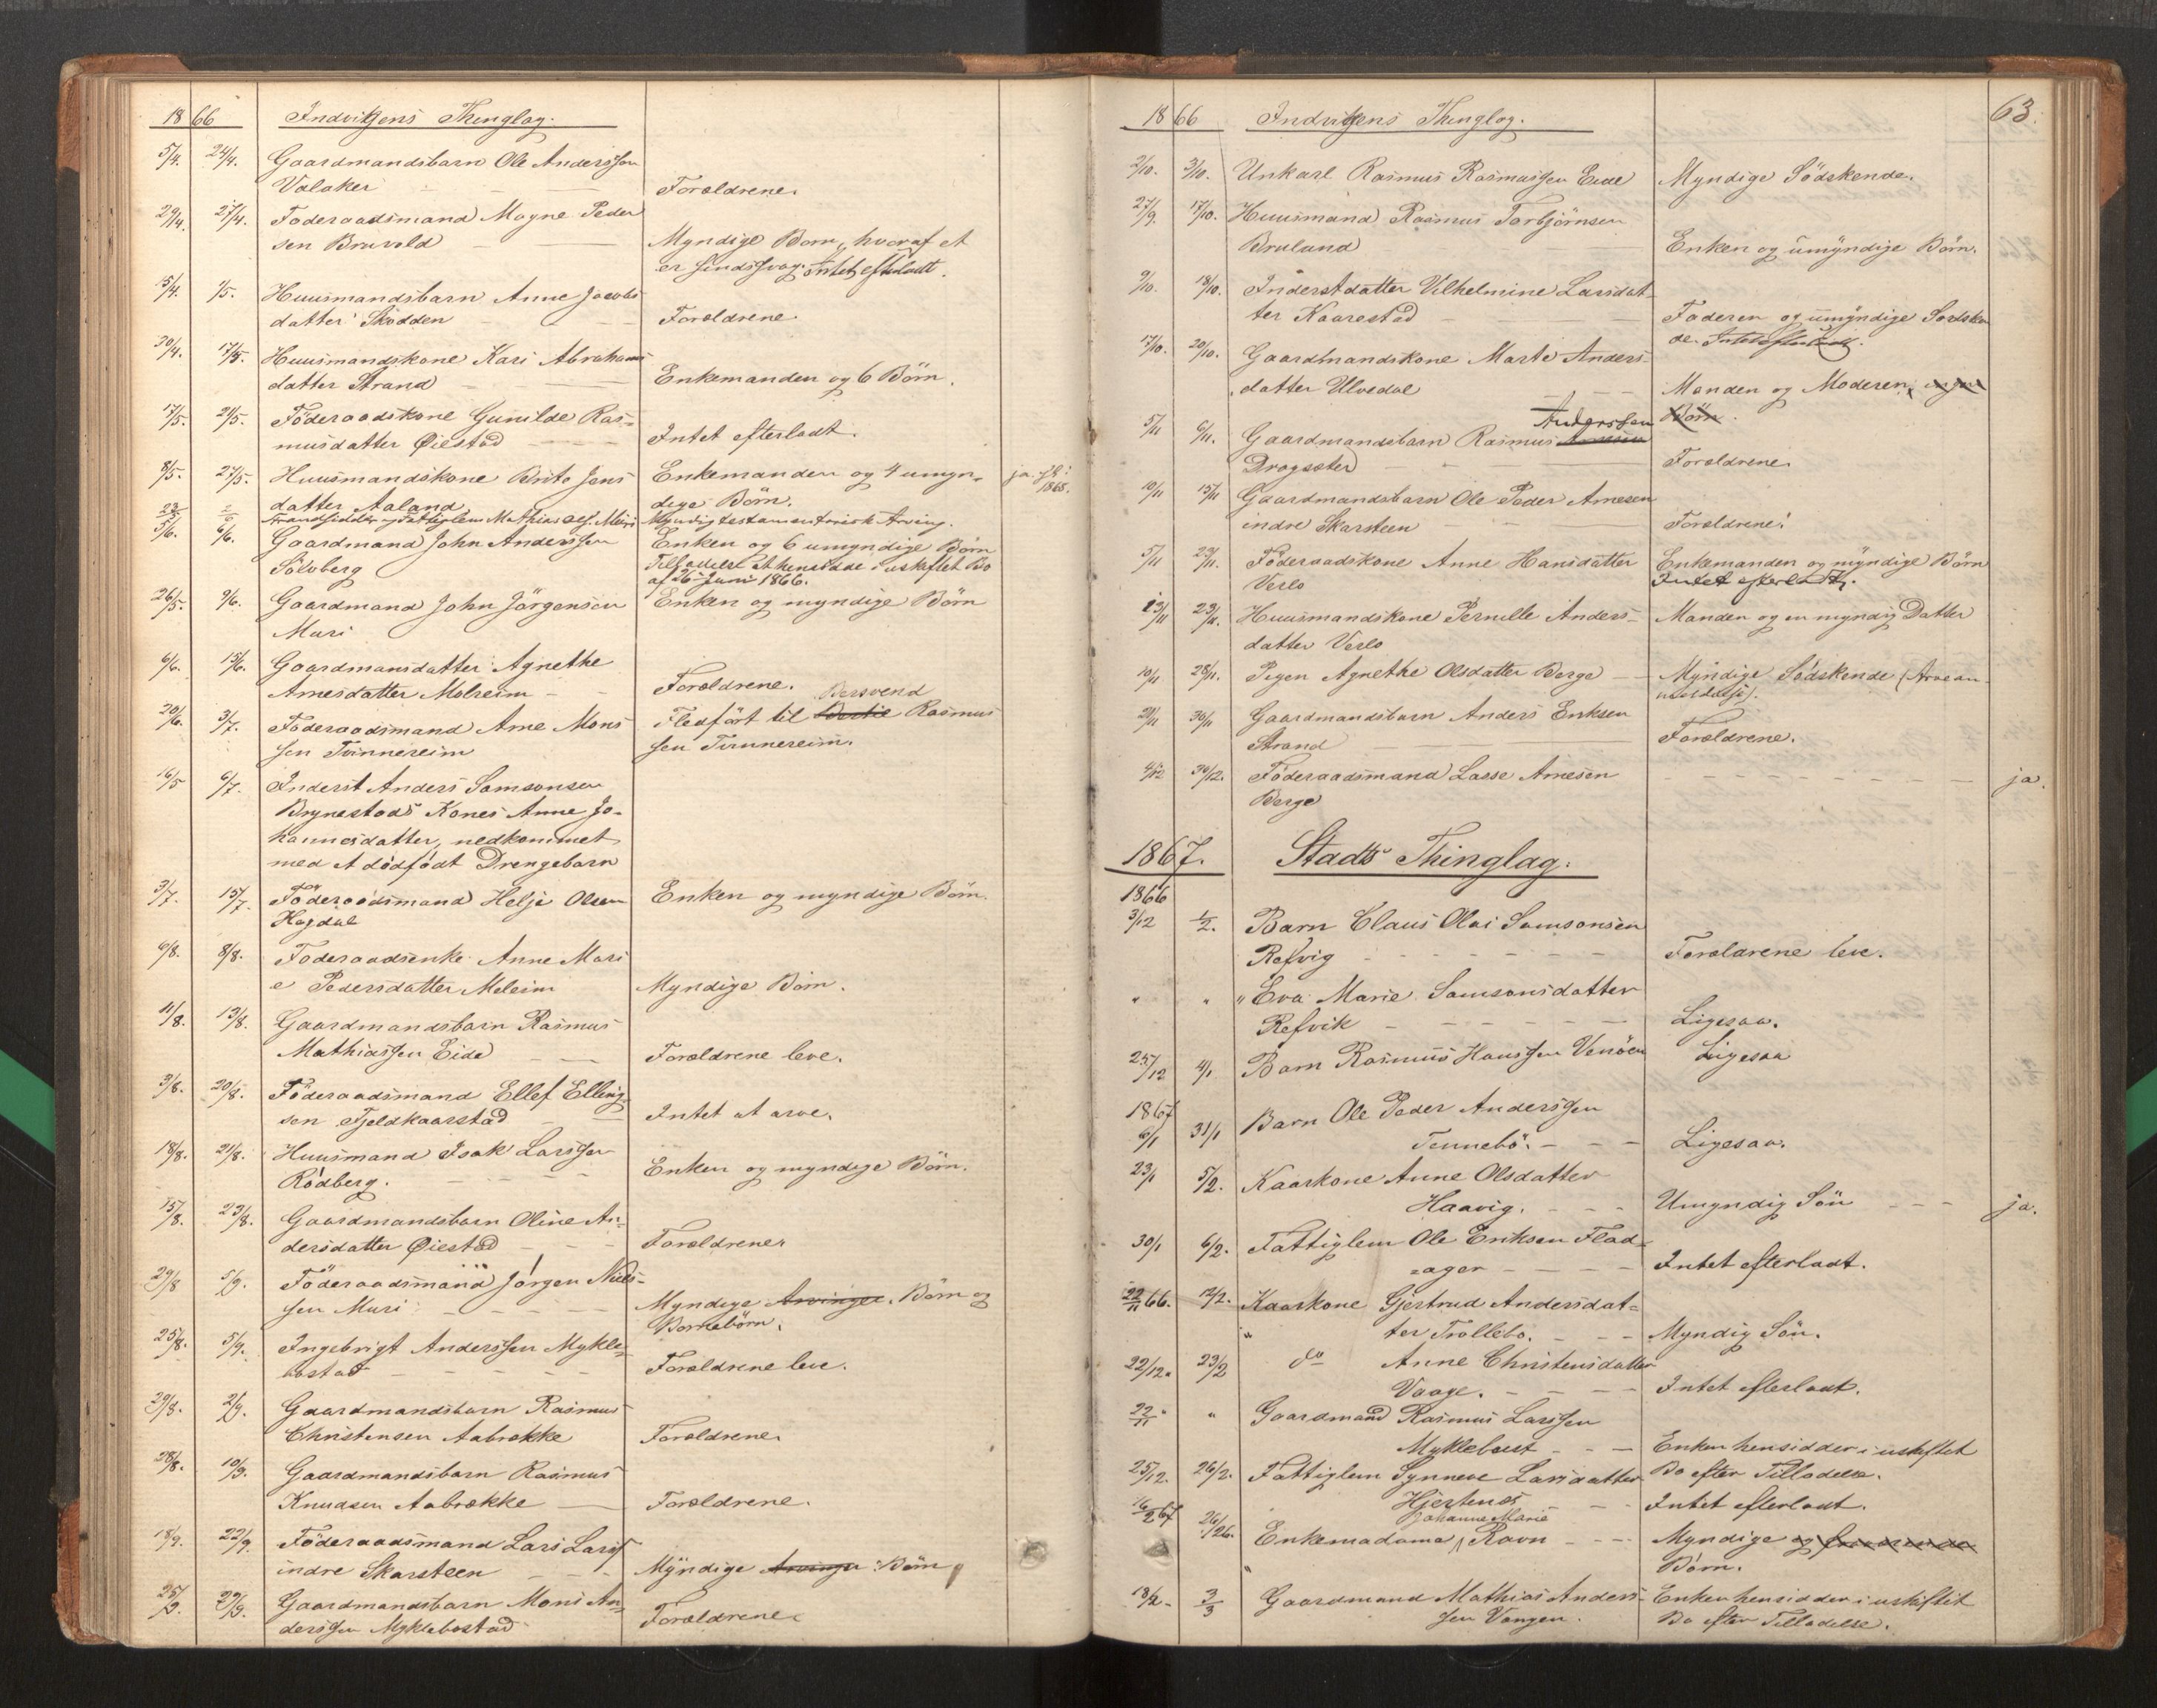 1866 Indvigens Thinglag.
5/4. 24/4. Gaardmandsbarn Ole Anderssen
Valaker Forældrene.
29/4. 27/4. Föderaadsmand Mogne Peder
sen Bruvold Myndige Børn, hvoraf et
er sindssvag. Intet efterladt.
15/4. 1/5. Huusmandsbarn Anne Jacobs
datter Skodden Forældrene.
30/4. 17/5. Huusmandskone Kari Abrahams
datter Strand Enkemanden og 6 Börn.
17/5. 21/5. Föderaadskone Gunilde Ras-
musdatter Øiestad Intet efterladt.
8/5. 27/5. Huusmandskone Brite Jens Enkemanden og 4 umyn- ja
datter Aaland dige Börn. 1868.
Strandsidder og Fattiglem Mathias Myndig testamentarisk Arving.
5/6. 6/6. Gaardmand John Anderssen Enken og 6 umyndige Börn
Sölvberg Tilladelse at hensidde i uskiftet Bo
af 26 Juni 1866.
26/5. 9/6. Gaardmand John Jörgensen Enken og myndige Börn
Muri
6/6. 15/6. Gaardmansdatter Agnethe
Arnesdatter Molreim Forældrene. Bersvend
20/6. 3/7. Föderaadsmand Arne Mons Fledfört til Bertil Rasmus
sen Tvinnereim sen Tvinnereim.
16/5 6/7. Inderst Anders Samsonsen
Brynestads Kones Anne Jo-
hannesdatter, nedkommet
med et dödfödt Drengebarn
3/7. 15/7. Föderaadsmand Helje Olsen Enken og myndige Börn.
Hagdal
6/8. 8/8. Föderaadsenke Anne Mari
e Pedersdatter Meleim Myndige Börn.
11/8. 13/8. Gaardmandsbarn Rasmus
Mathiassen Eide Forældrene leve.
3/8. 20/8. Föderaadsmand Ellef Elling
sen Tjeldkaarstad Intet at arve.
18/8. 21/8. Huusmand Isak Larssen
Rödberg. Enken og myndige Börn.
15/8. 23/8. Gaardmandsbarn Oline An-
dersdatter Øiestad Forældrene
29/8 5/9. Föderaadsmand Jörgen Niels-
sen Muri Myndige Arvinger. Börn og
Børnebörn.
25/8. 5/9. Ingebrigt Anderssen Mykle-
bostad Forældrene leve.
29/8. 2/9. Gaardmandsbarn Rasmus
Christensen Aabrekke Forældrene
28/8. 10/9. Gaardmandsbarn Rasmus
Knudsen Aabrekke Forældrene.
18/9. 22/9. Föderaadsmand Lars Larss
indre Skarsteen Myndige Arvinger Börn
25/9. 29/9. Gaardmandsbarn Mons An-
derssen Myklebostad Forældrene
63.
1866 Indvigens Thinglag.
2/10. 3/10. Unkarl Rasmus Rasmussen Eide Myndige Södskende.
27/9. 17/10. Huusmand Rasmus Torbjörnsen
Bruland Enken og umyndige Börn.
9/10. 18/10. Inderstdatter Vilhelmine Larsdat-
ter Kaarestad Faderen og umyndige Södsken
de. Intet efterladt.
17/10. 20/10. Gaardmandskone Marte Anders
datter Ulvedal Manden og Moderen, ingen
Anderssen Börn.
5/11 6/11. Gaardmandsbarn Rasmus
Dragsæter Forældrene
10/11 15/11 Gaardmandsbarn Ole Peder Arnesen
indre Skarsteen Forældrene.
5/11 23/11. Föderaadskone Anne Hansdatter Enkemanden og myndige Börn
Verlo Intet efterladt.
13/11 23/11. Huusmandskone Pernille Anders- Manden og en myndig Datter
datter Verlo
10/11 28/11. Pigen Agnethe Olsdatter Berge Myndige Södskende (Arvean-
meldelse).
21/11 30/11 Gaardmandsbarn Anders Eriksen
Strand Forældrene.
4/12 30/12. Föderaadsmand Lasse Arnesen ja.
Berge
1867. Stads Thinglag.
1866
3/12 1/2. Barn Claus Olai Samsonsen
Refvig Forældrene leve.
" " " Eva Marie Samsonsdatter
Refvik Ligesaa.
25/12 4/1 Barn Rasmus Hanssen Venöen Ligesaa
1867
6/1 31/1 Barn Ole Peder Anderssen
Tennebö. Ligesaa.
23/1 5/2. Kaarkone Anne Olsdatter
Haavig. Umyndig Sön ja.
30/1 6/2. Fattiglem Ole Eriksen Flad-
ager Intet efterladt.
22/11 66. 12/2. Kaarkone Gjertrud Andersdat-
" ter Trollebo. Myndig Sön.
22/12. 23/2 do Anne Christensdatter
Vaage. Intet efterladt.
22/11 " Gaardmand Rasmus Larssen
Myklebust Enken hensidder i uskiftet
25/12. 26/2. Fattiglem Synneve Larsdatter Bo efter Tilladelse.
Hjertenes Intet efterladt.
Johanne Marie
16/2 67 26/2. Enkemadame Ravn Myndige og
" Börn.
18/2. 3/3 Gaardmand Mathias Anders- Enken hensidder i uskiftet
sen Vangen. Bo efter Tilladelse.